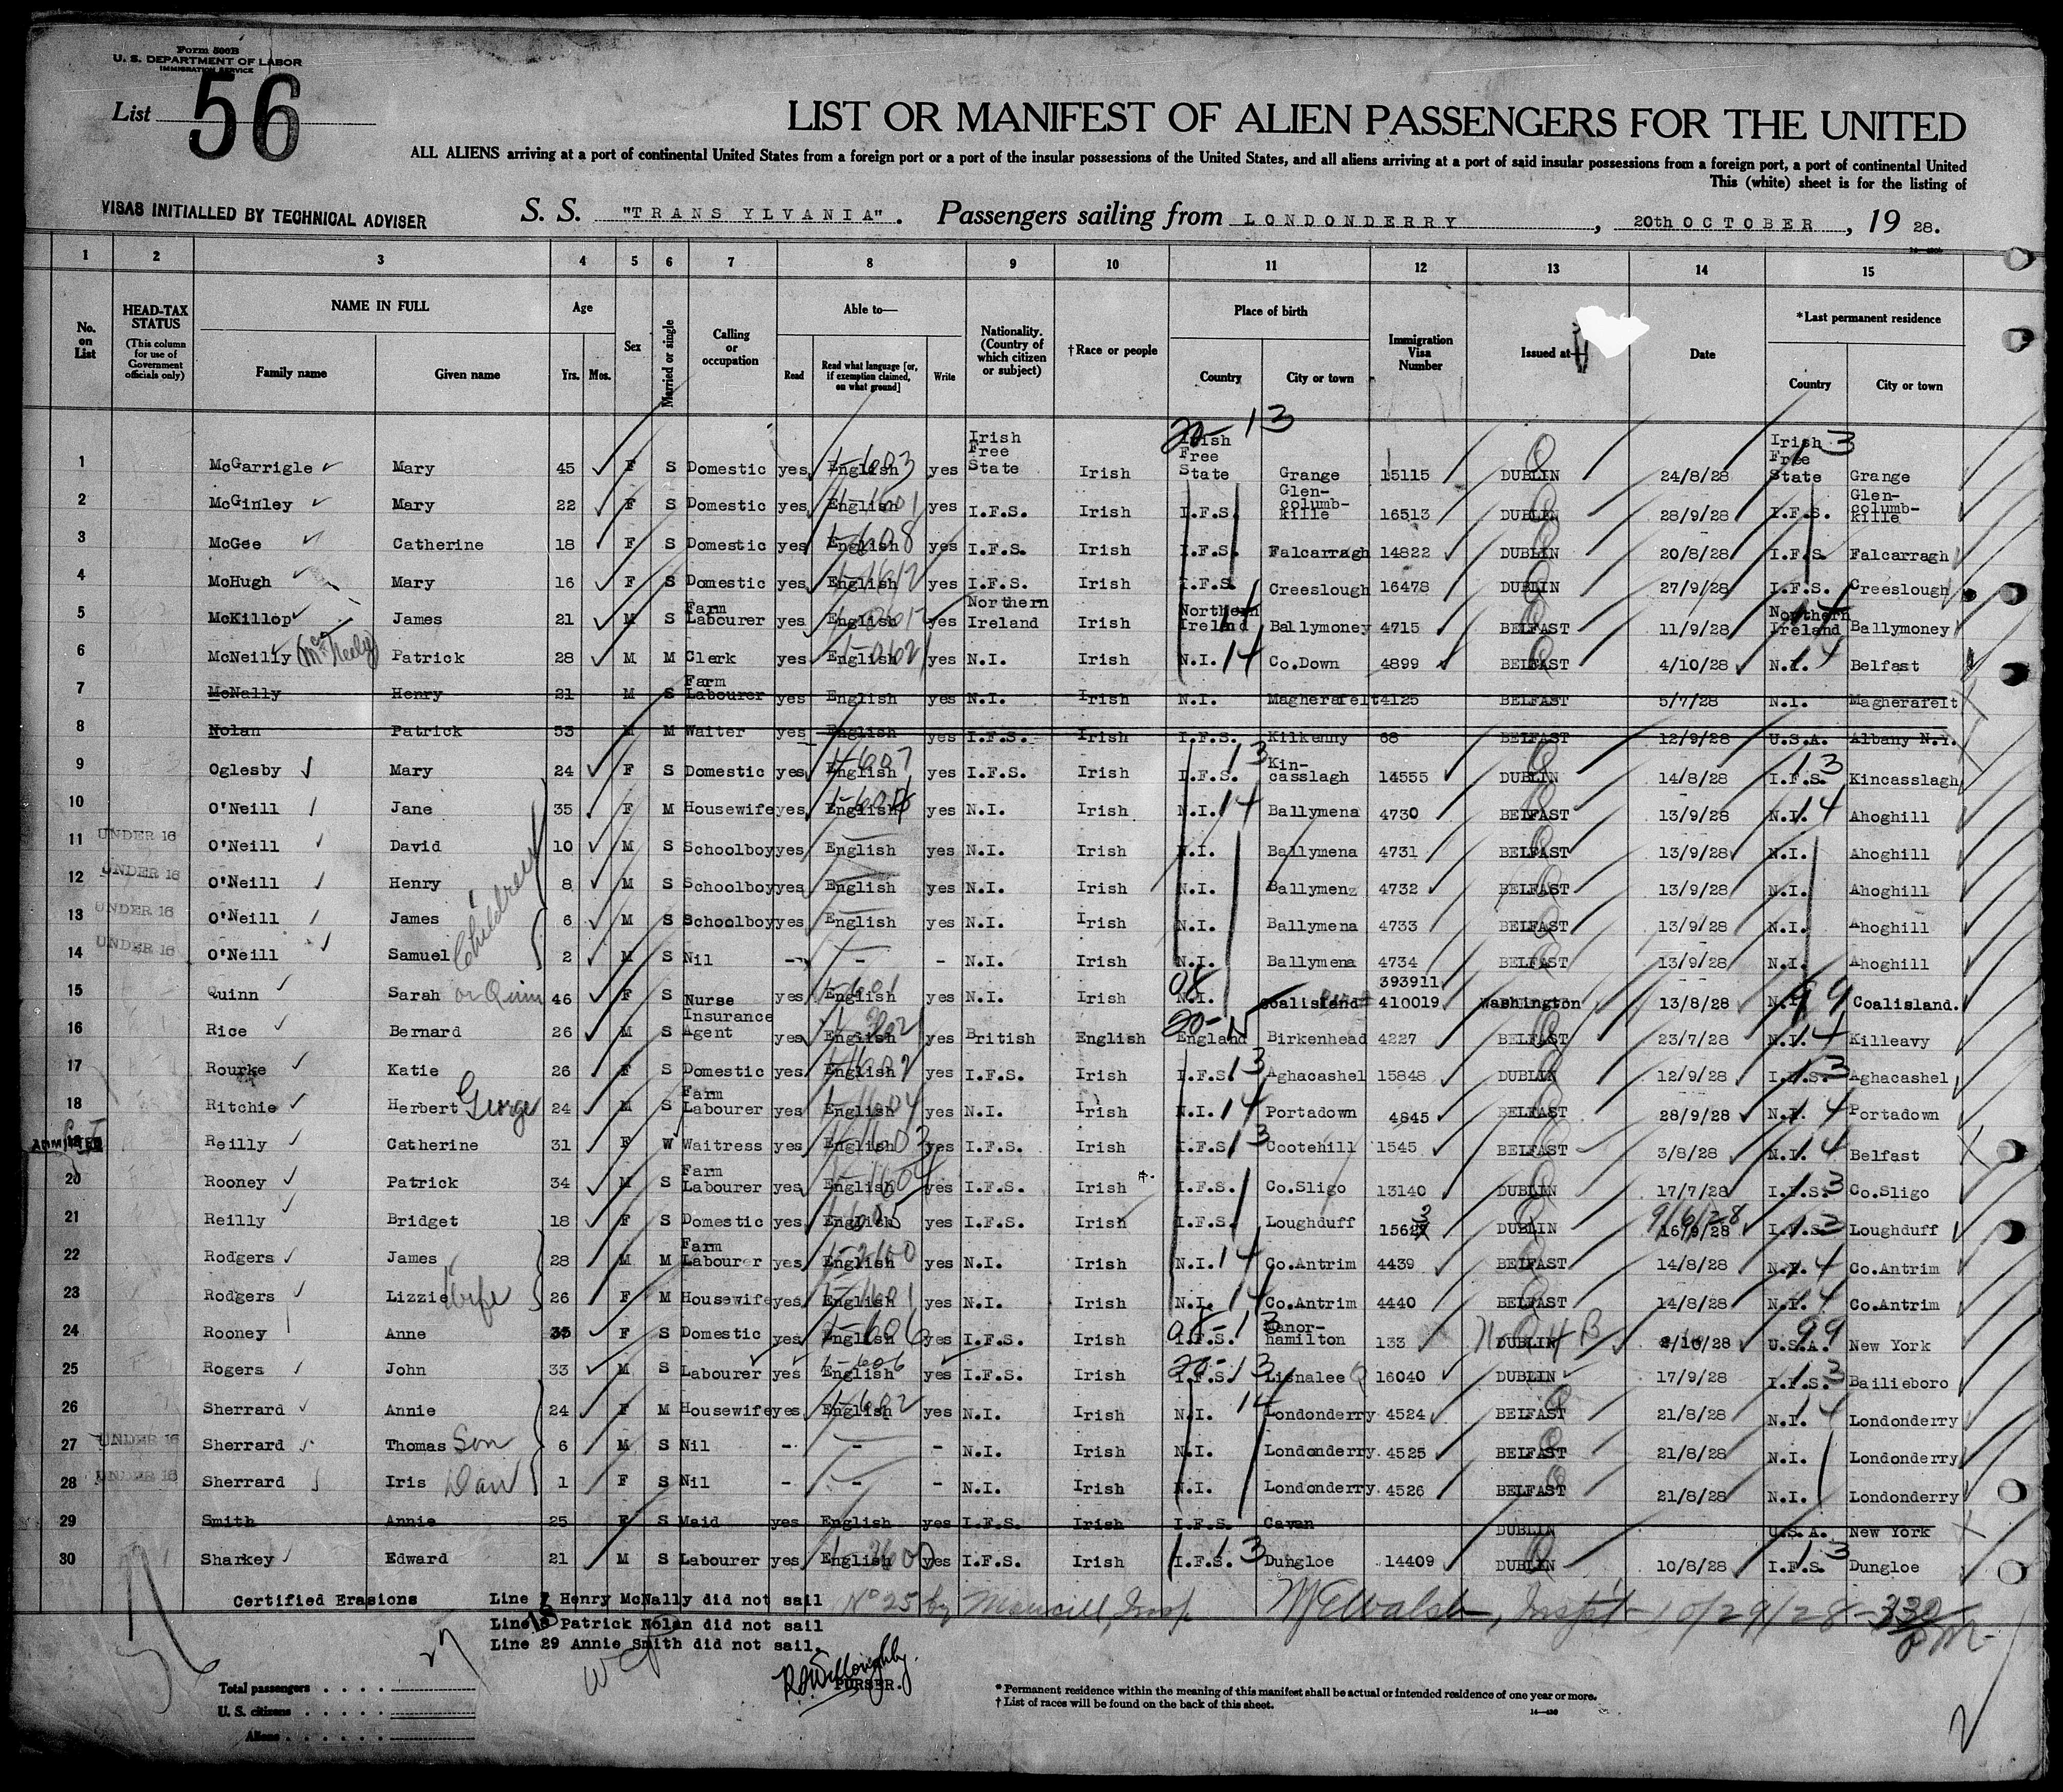 Form 500B
U. S. DEPARTMENT OF LABOR
IMMIGRATION SERVICE
List 56
LIST OR MANIFEST OF ALIEN PASSENGERS FOR THE UNITED
ALL ALIENS arriving at a port of continental United States from a foreign port or a port of the insular possessions of the United States, and all aliens arriving at a port of said insular possessions from a foreign port, a port of continental United
This (white) sheet is for the listing of
VISAS INITIALLED BY TECHNICAL ADVISER
S. S. "TRANSYLVANIA". Passengers sailing from LONDONDERRY, 20th OCTOBER, 19 28.
1 2 3 4 5 6 7 8 9 10 11 12 13 14 15
No. on List
HEAD-TAX STATUS (This column for use of Government officials only)
NAME IN FULL
Family name Given name
Age
Yrs. Mos.
Sex
Married or single
Calling or occupation
Able to—
Read Read what language [or, if exemption claimed, on what ground] Write
Nationality. (Country of which citizen or subject)
†Race or people
Place of birth
Country City or town
Immigration Visa Number
Issued at—
Date
*Last permanent residence
Country City or town
20- 13
1 McGarrigle Mary 45 F S Domestic yes English 1-603 yes Irish Free State Irish Irish Free State Grange 15115 DUBLIN 24/8/28 Irish Free State 13 Grange
2 McGinley Mary 22 F S Domestic yes English yes I.F.S. Irish I.F.S. Glen-columb-kille 16513 DUBLIN 28/9/28 I.F.S. Glen-columb-kille
3 McGee Catherine 18 F S Domestic yes English 1-608 yes I.F.S. Irish I.F.S. Falcarragh 14822 DUBLIN 20/8/28 I.F.S. Falcarragh
4 McHugh Mary 16 F S Domestic yes English yes I.F.S. Irish I.F.S. Creeslough 16478 DUBLIN 27/9/28 I.F.S. Creeslough
5 McKillop James 21 M S Farm Labourer yes English yes Northern Ireland Irish Northern Ireland 14 Ballymoney 4715 BELFAST 11/9/28 Northern Ireland 14 Ballymoney
6 McNeilly (McNeely) Patrick 28 M M Clerk yes English yes N.I. Irish N.I. 14 Co.Down 4899 BELFAST 4/10/28 N.I. 14 Belfast
7 McNally Henry 21 M S Farm Labourer yes English yes N.I. Irish N.I. Magherafelt 4125 BELFAST 5/7/28 N.I. Magherafelt
8 Nolan Patrick 53 M M Waiter yes English yes I.F.S. Irish I.F.S. Kilkenny 68 BELFAST 12/9/28 U.S.A. Albany N.Y.
9 Oglesby Mary 24 F S Domestic yes English 1-607 yes I.F.S. Irish I.F.S. 13 Kin-casslagh 14555 DUBLIN 14/8/28 I.F.S. 13 Kincasslagh
10 O'Neill Jane 35 F M Housewife yes English yes N.I. Irish N.I. 14 Ballymena 4730 BELFAST 13/9/28 N.I. 14 Ahoghill
11 UNDER 16 O'Neill David 10 M S Schoolboy yes English yes N.I. Irish N.I. Ballymena 4731 BELFAST 13/9/28 N.I. Ahoghill
Children
12 UNDER 16 O'Neill Henry 8 M S Schoolboy yes English yes N.I. Irish N.I. Ballymenz 4732 BELFAST 13/9/28 N.I. Ahoghill
13 UNDER 16 O'Neill James 6 M S Schoolboy yes English yes N.I. Irish N.I. Ballymena 4733 BELFAST 13/9/28 N.I. Ahoghill
14 UNDER 16 O'Neill Samuel 2 M S Nil - - - N.I. Irish N.I. Ballymena 4734 BELFAST 13/9/28 N.I. Ahoghill
15 Quinn Sarah or Quin 46 F S Nurse yes English 1-601 yes N.I. Irish N.I. 08 Coalisland 393911 410019 Washington 13/8/28 N.I. 99 Coalisland.
16 Rice Bernard 26 M S Insurance Agent yes English yes British English England 20- Birkenhead 4227 BELFAST 23/7/28 N.I. 14 Killeavy
17 Rourke Katie 26 F S Domestic yes English 1-602 yes I.F.S. Irish I.F.S. 13 Aghacashel 15848 DUBLIN 12/9/28 I.F.S. 13 Aghacashel
18 Ritchie Herbert George 24 M S Farm Labourer yes English 1-604 yes N.I. Irish N.I. 14 Portadown 4845 BELFAST 28/9/28 N.I. 14 Portadown
19 ADMITTED Reilly Catherine 31 F W Waitress yes English 1-603 yes I.F.S. Irish I.F.S. 13 Cootehill 1545 BELFAST 3/8/28 N.I. 14 Belfast
20 Rooney Patrick 34 M S Farm Labourer yes English yes I.F.S. Irish I.F.S. Co.Sligo 13140 DUBLIN 17/7/28 I.F.S. 13 Co.Sligo
21 Reilly Bridget 18 F S Domestic yes English 1-605 yes I.F.S. Irish I.F.S. Loughduff 1562 3 DUBLIN 16/9/28 9/6/28 I.F.S. 13 Loughduff
22 Rodgers James 28 M M Farm Labourer yes English yes N.I. Irish N.I. 14 Co.Antrim 4439 BELFAST 14/8/28 N.I. 14 Co.Antrim
23 Rodgers Lizzie Wife 26 F M Housewife yes English 1-601 yes N.I. Irish N.I. 14 Co.Antrim 4440 BELFAST 14/8/28 N.I. 14 Co.Antrim
24 Rooney Anne 35 F S Domestic yes English 1-606 yes I.F.S. Irish I.F.S. 08-13 Manor-hamilton 133 DUBLIN /10/28 U.S.A. 99 New York
25 Rogers John 33 M S Labourer yes English 1-606 yes I.F.S. Irish I.F.S. 20-13 Lisnalee 16040 DUBLIN 17/9/28 I.F.S. 13 Bailieboro
26 Sherrard Annie 24 F M Housewife yes English 1-602 yes N.I. Irish N.I. 14 Londonderry 4524 BELFAST 21/8/28 N.I. 14 Londonderry
27 UNDER 16 Sherrard Thomas Son 6 M S Nil - - - N.I. Irish N.I. Londonderry 4525 BELFAST 21/8/28 N.I. Londonderry
28 UNDER 16 Sherrard Iris Dau 1 F S Nil - - - N.I. Irish N.I. Londonderry 4526 BELFAST 21/8/28 N.I. Londonderry
29 Smith Annie 25 F S Maid yes English yes I.F.S. Irish I.F.S. Cavan DUBLIN U.S.A. New York
30 Sharkey Edward 21 M S Labourer yes English yes I.F.S. Irish I.F.S. 13 Dungloe 14409 DUBLIN 10/8/28 I.F.S. 13 Dungloe
Certified Erasions Line 7 Henry McNally did not sail
No 25 by Insp W E Walsh, Inspt 10/29/28 - 3 30 PM
Line 8 Patrick Nolan did not sail
Line 29 Annie Smith did not sail.
27
R Willoughby.
PURSER.
Total passengers . . . .
U. S. citizens . . . . .
Aliens . . . . . .
* Permanent residence within the meaning of this manifest shall be actual or intended residence of one year or more.
† List of races will be found on the back of this sheet.
14—430